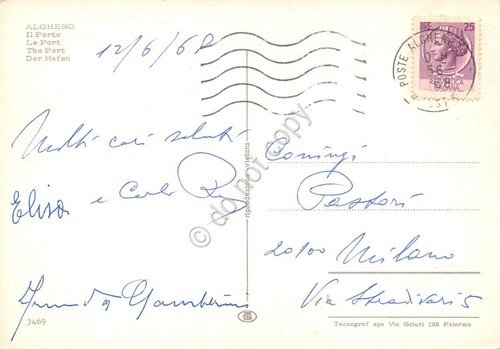 ALGHERO
Il Porto
Le Port
The Port
Der Hafen
12/6/68
25
POSTE ALGHERO
68
Molti cari saluti
Elisa e Carlo
do not copy
riproduzione vietata
Coniugi
Pastori
20100 Milano
Via Stradivari 5
3469
Tecnograf spa Via Sciuti 128 Palermo